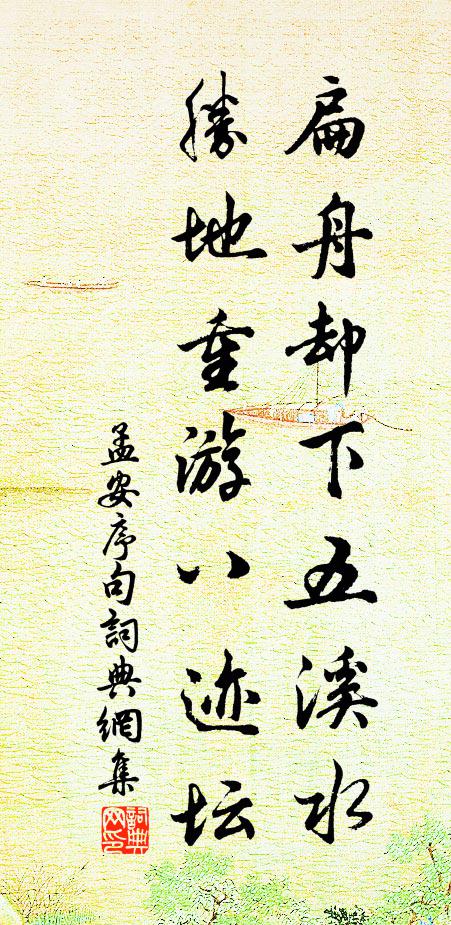 扁舟却下五溪水
勝地重游八迹坛
孟安序句詞典網集
詞典
网印